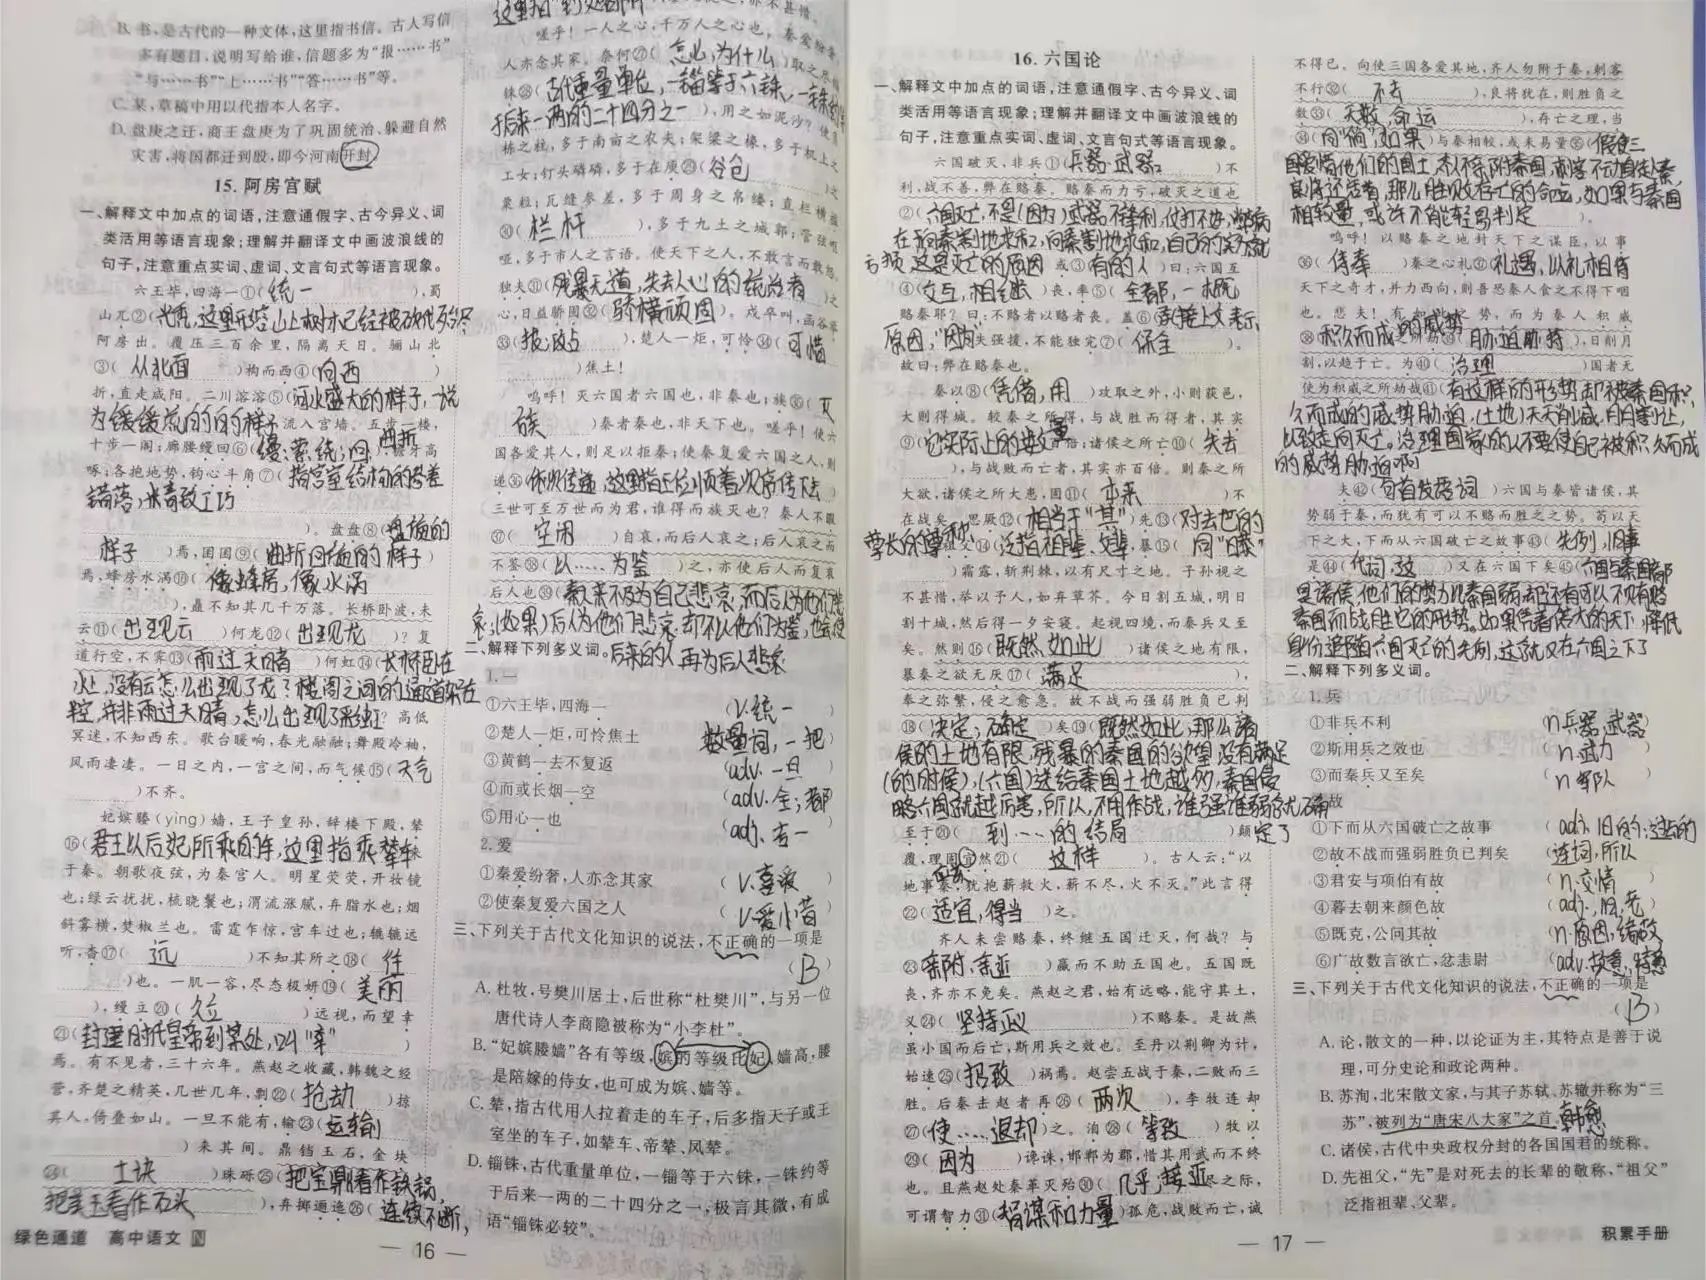 B. 书,是古代的一种文体,这里指书信。古人写信
多有题目,说明写给谁,信题多为“报……书”
“与……书”“上……书”“答……书”等。
C. 某,草稿中用以代指本人名字。
D. 盘庚之迁,商王盘庚为了巩固统治、躲避自然
灾害,将国都迁到殷,即今河南开封
15. 阿房宫赋
一、解释文中加点的词语,注意通假字、古今异义、词
类活用等语言现象;理解并翻译文中画波浪线的
句子,注意重点实词、虚词、文言句式等语言现象。
六王毕,四海一①(统一),蜀
山兀②(光秃,这里形容山上树木已经被砍伐殆尽
阿房出。覆压三百余里,隔离天日。骊山北
③(从北面)构而西④(向西)
折,直走咸阳。二川溶溶⑤(河水盛大的样子,一说
为缓缓流的样子 流入宫墙。五步一楼,
十步一阁;廊腰缦回⑥(缦:萦绕;回:曲折 檐牙高
啄;各抱地势,钩心斗角⑦(指宫室结构的参差
错落,精致工巧
)。盘盘⑧(盘旋的
样子)焉,囷囷⑨(曲折回旋的样子)
焉,蜂房水涡⑩(像蜂房,像水涡
),矗不知其几千万落。长桥卧波,未
云⑪(出现云)何龙⑫(出现龙)?复
道行空,不霁⑬(雨过天晴)何虹⑭(长桥卧在
水上,没有云怎么出现了龙?楼阁之间的通道架在
空,并非雨过天晴,怎么出现了彩虹)?高低
冥迷,不知西东。歌台暖响,春光融融;舞殿冷袖,
风雨凄凄。一日之内,一宫之间,而气候⑮(天气
)不齐。
妃嫔媵(yìng)嫱,王子皇孙,辞楼下殿,辇
⑯(君王以后妃所乘的车,这里指乘辇车 来
于秦。朝歌夜弦,为秦宫人。明星荧荧,开妆镜
也;绿云扰扰,梳晓鬟也;渭流涨腻,弃脂水也;烟
斜雾横,焚椒兰也。雷霆乍惊,宫车过也;辘辘远
听,杳⑰(远)不知其所之⑱(往
)也。一肌一容,尽态极妍⑲(美丽
),缦立⑳(久立)远视,而望幸
㉑(封建时代皇帝到某处,叫“幸”)
焉。有不见者,三十六年。燕赵之收藏,韩魏之经
营,齐楚之精英,几世几年,剽㉒(抢劫)掠
其人,倚叠如山。一旦不能有,输㉓(运输
)来其间。鼎铛玉石,金块
㉔(土块)珠砾㉕(把宝鼎看作铁锅,
把美玉看作石头),弃掷逦迤㉖(连续不断,
绿色通道 高中语文 N
— 16 —
嗟乎!一人之心,千万人之心也。秦爱纷奢,
人亦念其家。奈何㉗(怎么,为什么)取之尽锱
铢㉘(古代重量单位,一锱等于六铢,一铢约等
于后来一两的二十四分之一),用之如泥沙?使负
栋之柱,多于南亩之农夫;架梁之椽,多于机上之
工女;钉头磷磷,多于在庾㉙(谷仓)之
粟粒;瓦缝参差,多于周身之帛缕;直栏横槛
㉚(栏杆),多于九土之城郭;管弦呕
哑,多于市人之言语。使天下之人,不敢言而敢怒。
独夫㉛(残暴无道,失去人心的统治者)之
心,日益骄固㉜(骄横顽固)。戍卒叫,函谷举
㉝(拔,攻占),楚人一炬,可怜㉞(可惜
)焦土!
呜呼!灭六国者六国也,非秦也;族㉟(灭
族)秦者秦也,非天下也。嗟乎!使六
国各爱其人,则足以拒秦;使秦复爱六国之人,则
递㊱(依次传递,这里指王位顺着次序传下去)
三世可至万世而为君,谁得而族灭也?秦人不暇
㊲(空闲)自哀,而后人哀之;后人哀之而
不鉴㊳(以……为鉴)之,亦使后人而复哀
后人也㊴(秦人来不及为自己悲哀,而后人为他们悲
哀;(如果)后人为他们悲哀,却不以他们为鉴,也会使
后来的人再为后人悲哀
二、解释下列多义词。
1. 一
①六王毕,四海一 (v.统一)
②楚人一炬,可怜焦土 数量词,一把
③黄鹤一去不复返 (adv.一旦)
④而或长烟一空 (adv.全;都)
⑤用心一也 (adj.专一)
2. 爱
①秦爱纷奢,人亦念其家 (v.喜欢)
②使秦复爱六国之人 (v.爱惜)
三、下列关于古代文化知识的说法,不正确的一项是
(B)
A. 杜牧,号樊川居士,后世称“杜樊川”,与另一位
唐代诗人李商隐被称为“小李杜”。
B. “妃嫔媵嫱”各有等级,嫔的等级比妃、嫱高,媵
是陪嫁的侍女,也可成为嫔、嫱等。
C. 辇,指古代用人拉着走的车子,后多指天子或王
室坐的车子,如辇车、帝辇、凤辇。
D. 锱铢,古代重量单位,一锱等于六铢,一铢约等
于后来一两的二十四分之一,极言其微,有成
语“锱铢必较”。
16. 六国论
一、解释文中加点的词语,注意通假字、古今异义、词
类活用等语言现象;理解并翻译文中画波浪线的
句子,注意重点实词、虚词、文言句式等语言现象。
六国破灭,非兵①(兵器,武器)不
利,战不善,弊在赂秦。赂秦而力亏,破灭之道也
②(六国灭亡,不是(因为)武器不锋利,仗打不好,弊病
在于向秦割地求和,向秦割地求和,自己的实力就
亏损,这是灭亡的原因 或③(有的人)曰:六国互
④(交互,相继)丧,率⑤(全都,一概)
赂秦耶?曰:不赂者以赂者丧。盖⑥(承接上文表示
原因,“因为”失强援,不能独完⑦(保全)。
故曰:弊在赂秦也。
秦以⑧(凭借,用)攻取之外,小则获邑,
大则得城。较秦之所得,与战胜而得者,其实
⑨(它实际上的数量 百倍;诸侯之所亡⑩(失去
),与战败而亡者,其实亦百倍。则秦之所
大欲,诸侯之所大患,固⑪(本来)不
在战矣。思厥⑫(相当于“其”)先⑬(对去世的
尊长的尊称)祖父⑭(泛指祖辈、父辈),暴⑮(同“曝”
)霜露,斩荆棘,以有尺寸之地。子孙视之
不甚惜,举以予人,如弃草芥。今日割五城,明日
割十城,然后得一夕安寝。起视四境,而秦兵又至
矣。然则⑯(既然如此)诸侯之地有限,
暴秦之欲无厌⑰(满足),
奉之弥繁,侵之愈急。故不战而强弱胜负已判
⑱(决定,确定)矣⑲(既然如此,那么诸
侯的土地有限,残暴的秦国的欲望没有满足
(的时候),(六国)送给秦国土地越多,秦国侵
略六国就越厉害,所以,不用作战,谁强谁弱就确
定了
至于⑳(到……的结局)颠
覆,理固宜然㉑(这样)。古人云:“以
地事秦,犹抱薪救火,薪不尽,火不灭。”此言得
㉒(适宜,得当)之。
齐人未尝赂秦,终继五国迁灭,何哉?与
㉓(亲附,亲近)嬴而不助五国也。五国既
丧,齐亦不免矣。燕赵之君,始有远略,能守其土,
义㉔(坚持正义)不赂秦。是故燕
虽小国而后亡,斯用兵之效也。至丹以荆卿为计,
始速㉕(招致)祸焉。赵尝五战于秦,二败而三
胜。后秦击赵者再㉖(两次),李牧连却
㉗(使……退却)之。洎㉘(等到)牧以
㉙(因为)谗诛,邯郸为郡,惜其用武而不终
也。且燕赵处秦革灭殆㉚(几乎,接近)尽之际,
可谓智力㉛(智谋和力量)孤危,战败而亡,诚
不得已。向使三国各爱其地,齐人勿附于秦,刺客
不行㉜(不去),良将犹在,则胜负之
数㉝(天数,命运),存亡之理,当
㉞(同“倘”,如果)与秦相较,或未易量㉟(假使三
国爱惜他们的国土,齐不亲附秦国,刺客不动身去秦,
良将还活着,那么胜败存亡的命运,如果与秦国
相较量,或许不能轻易判定)。
呜呼!以赂秦之地封天下之谋臣,以事
㊱(侍奉)秦之心礼㊲(礼遇,以礼相待
天下之奇才,并力西向,则吾恐秦人食之不得下咽
也。悲夫!有如此之势,而为秦人积威
㊳(积久而成的威势 之所劫㊴(胁迫,胁持),日削月
割,以趋于亡。为㊵(治理)国者无
使为积威之所劫哉㊶(有这样的形势却被秦国积
久而成的威势胁迫,(土地)天天削减,月月割让,
以致走向灭亡。治理国家的人不要使自己被积久而成
的威势胁迫啊
夫㊷(句首发语词)六国与秦皆诸侯,其
势弱于秦,而犹有可以不赂而胜之之势。苟以天
下之大,下而从六国破亡之故事㊸(先例,旧事
是㊹(代词,这)又在六国下矣㊺(六国与秦国都
是诸侯,他们的势力比秦国弱,却还有可以不贿赂
秦国而战胜它的形势。如果凭着偌大的天下,降低
身份追随六国灭亡的先例,这就又在六国之下了
二、解释下列多义词。
1. 兵
①非兵不利 (n.兵器,武器
②斯用兵之效也 (n.武力
③而秦兵又至矣 (n.军队
故
①下而从六国破亡之故事 (adj.旧的;过去的
②故不战而强弱胜负已判矣 (连词,所以
③君安与项伯有故 (n.交情
④暮去朝来颜色故 (adj.,旧,老
⑤既克,公问其故 (n.原因,缘故
⑥广故数言欲亡,忿恚尉 (adv.故意,特意
三、下列关于古代文化知识的说法,不正确的一项是
(B)
A. 论,散文的一种,以论证为主,其特点是善于说
理,可分史论和政论两种。
B. 苏洵,北宋散文家,与其子苏轼、苏辙并称为“三
苏”,被列为“唐宋八大家”之首。韩愈
C. 诸侯,古代中央政权分封的各国国君的统称。
D. 先祖父,“先”是对死去的长辈的敬称,“祖父”
泛指祖辈、父辈。
— 17 —
积累手册